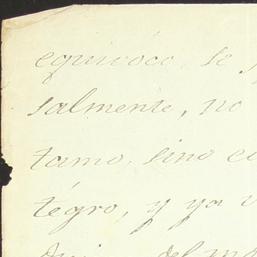 equivóco, se
salmente, no
tamo, sino
tégro, y ya
del